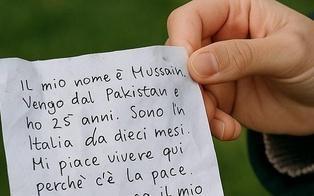 Il mio nome è Mussain.
Vengo dal Pakistan e
ho 25 anni. Sono l'n
Italia da dieci mesi.
Mi piace vivere qui
perchè c'è la pace.
il mio